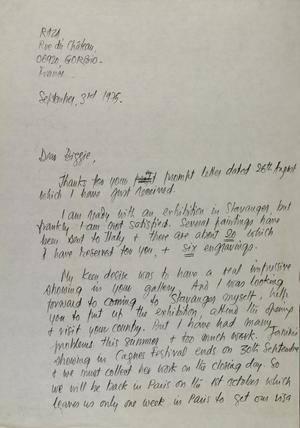 RAZA
Rue du Château,
06920, GORBIO -
France -
September, 3rd 1975 -
Dear Biggie,
Thanks for your prompt letter dated 26th August
which I have just received.
I am ready with an exhibition in Stavanger, but
frankly I am not satisfied. Several paintings have
been sent to Italy + there are about 20 which
I have reserved for you, + six engravings.
My keen desire was to have a real impressive
showing in your gallery. And I was looking
forward to coming to Stavanger myself, help
you to put up the exhibition, attend the opening
+ visit your country. But I have had many
problems this summer + too much work. Janine's
showing in Cagnes Festival ends on 30th September
+ we must collect her work on the closing day. So
we will be back in Paris on the 1st october which
leaves us only one week in Paris to get our visa